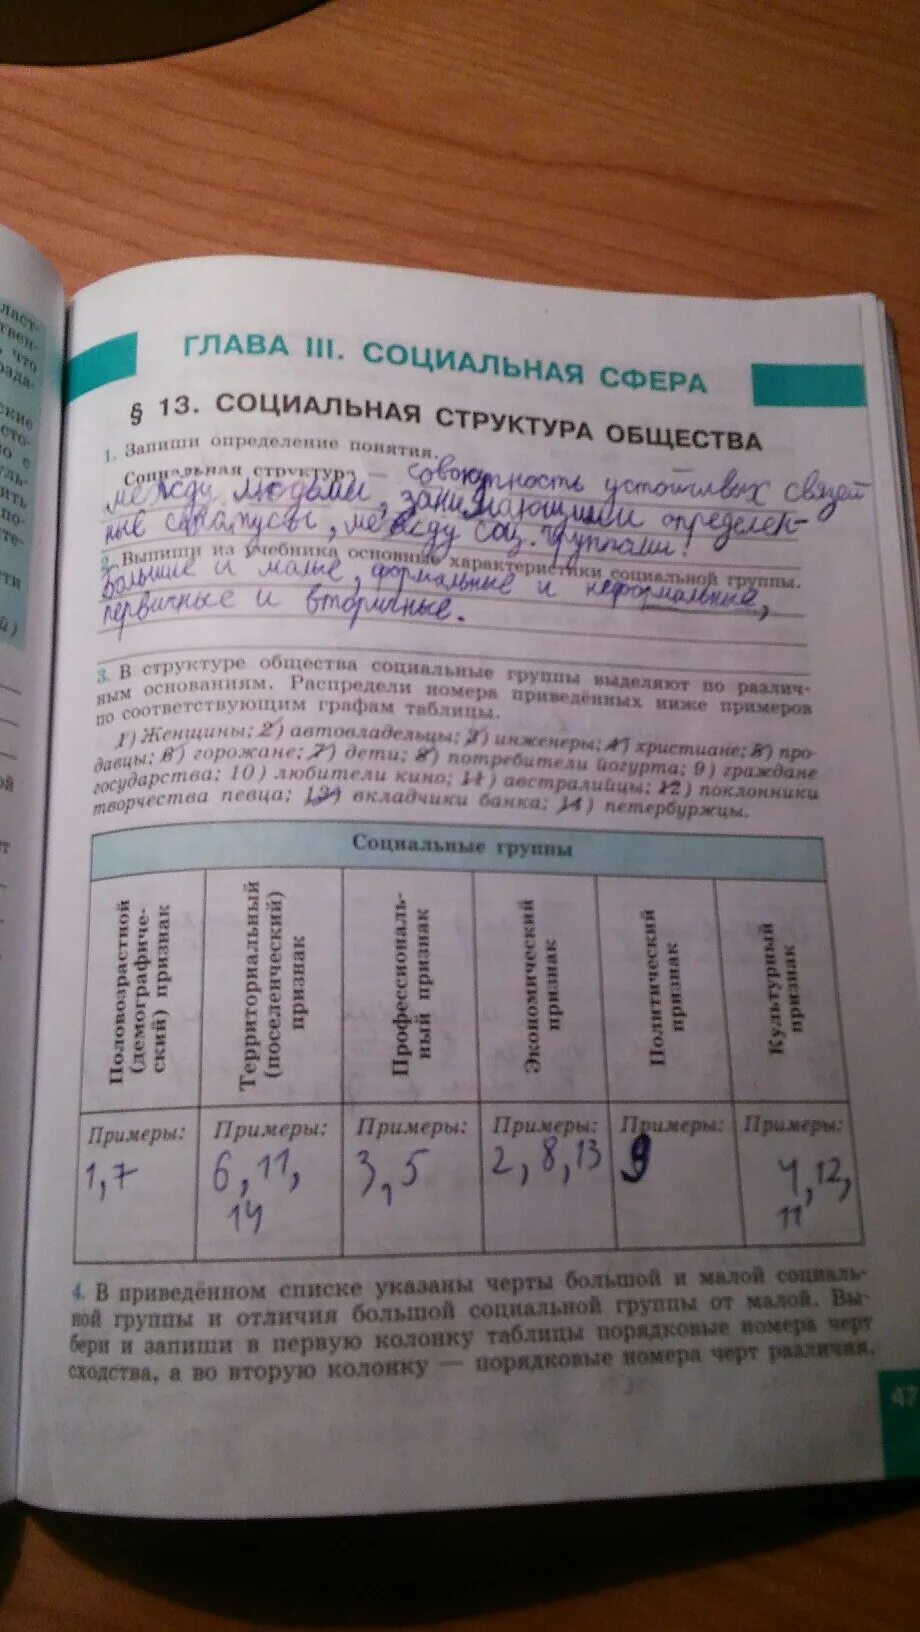 ласт-
твен-
что
зда-
ские
сто-
о с
уль-
ить
по-
сте-
сти
й)
ой
ет
ГЛАВА III. СОЦИАЛЬНАЯ СФЕРА
§ 13. СОЦИАЛЬНАЯ СТРУКТУРА ОБЩЕСТВА
1. Запиши определение понятия.
Социальная структура — совокупность устойчивых связей
между людьми, занимающими определен-
ные статусы, между соц. группами.
2. Выпиши из учебника основные характеристики социальной группы.
Большие и малые, формальные и неформальные,
первичные и вторичные.
3. В структуре общества социальные группы выделяют по различ-
ным основаниям. Распредели номера приведённых ниже примеров
по соответствующим графам таблицы.
1) Женщины; 2) автовладельцы; 3) инженеры; 4) христиане; 5) про-
давцы; 6) горожане; 7) дети; 8) потребители йогурта; 9) граждане
государства; 10) любители кино; 11) австралийцы; 12) поклонники
творчества певца; 13) вкладчики банка; 14) петербуржцы.
Социальные группы
Половозрастной
(демографиче-
ский) признак
Территориальный
(поселенческий)
признак
Профессиональ-
ный признак
Экономический
признак
Политический
признак
Культурный
признак
Примеры: Примеры: Примеры: Примеры: Примеры: Примеры:
1,7 6,11, 3,5 2,8,13 9 4,12,
14 11
4. В приведённом списке указаны черты большой и малой социаль-
ной группы и отличия большой социальной группы от малой. Вы-
бери и запиши в первую колонку таблицы порядковые номера черт
сходства, а во вторую колонку — порядковые номера черт различия.
47